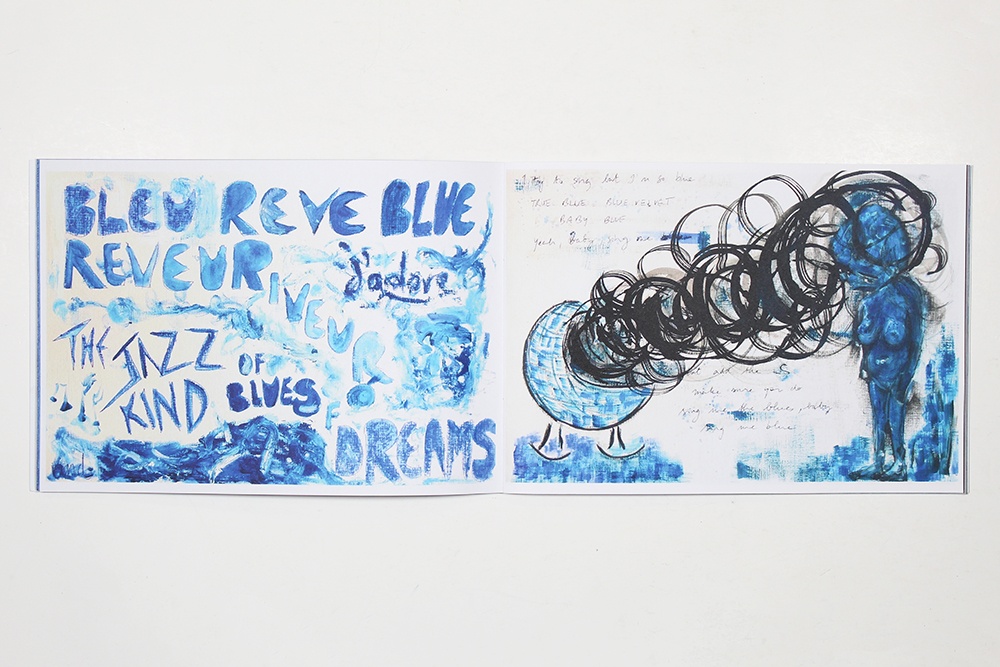 BLEU REVE BLUE
REVEUR
j'adore
IVEUR
THE JAZZ KIND
OF BLUES
OF
DREAMS
and
I try to sing but I'm so blue
TRUE BLUE : BLUE VELVET
BABY BLUE
yeah, Baby, sing me
add the
make sure you do
sing the blues, baby
sing me blue